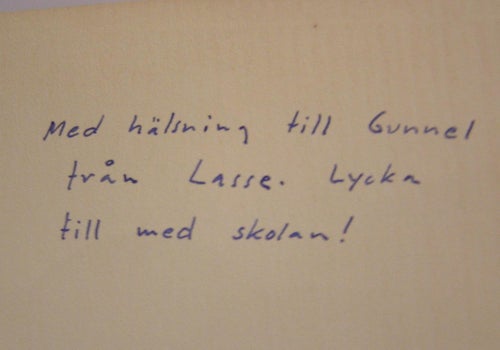 Med hälsning till Gunnel
från Lasse. Lycka
till med skolan!